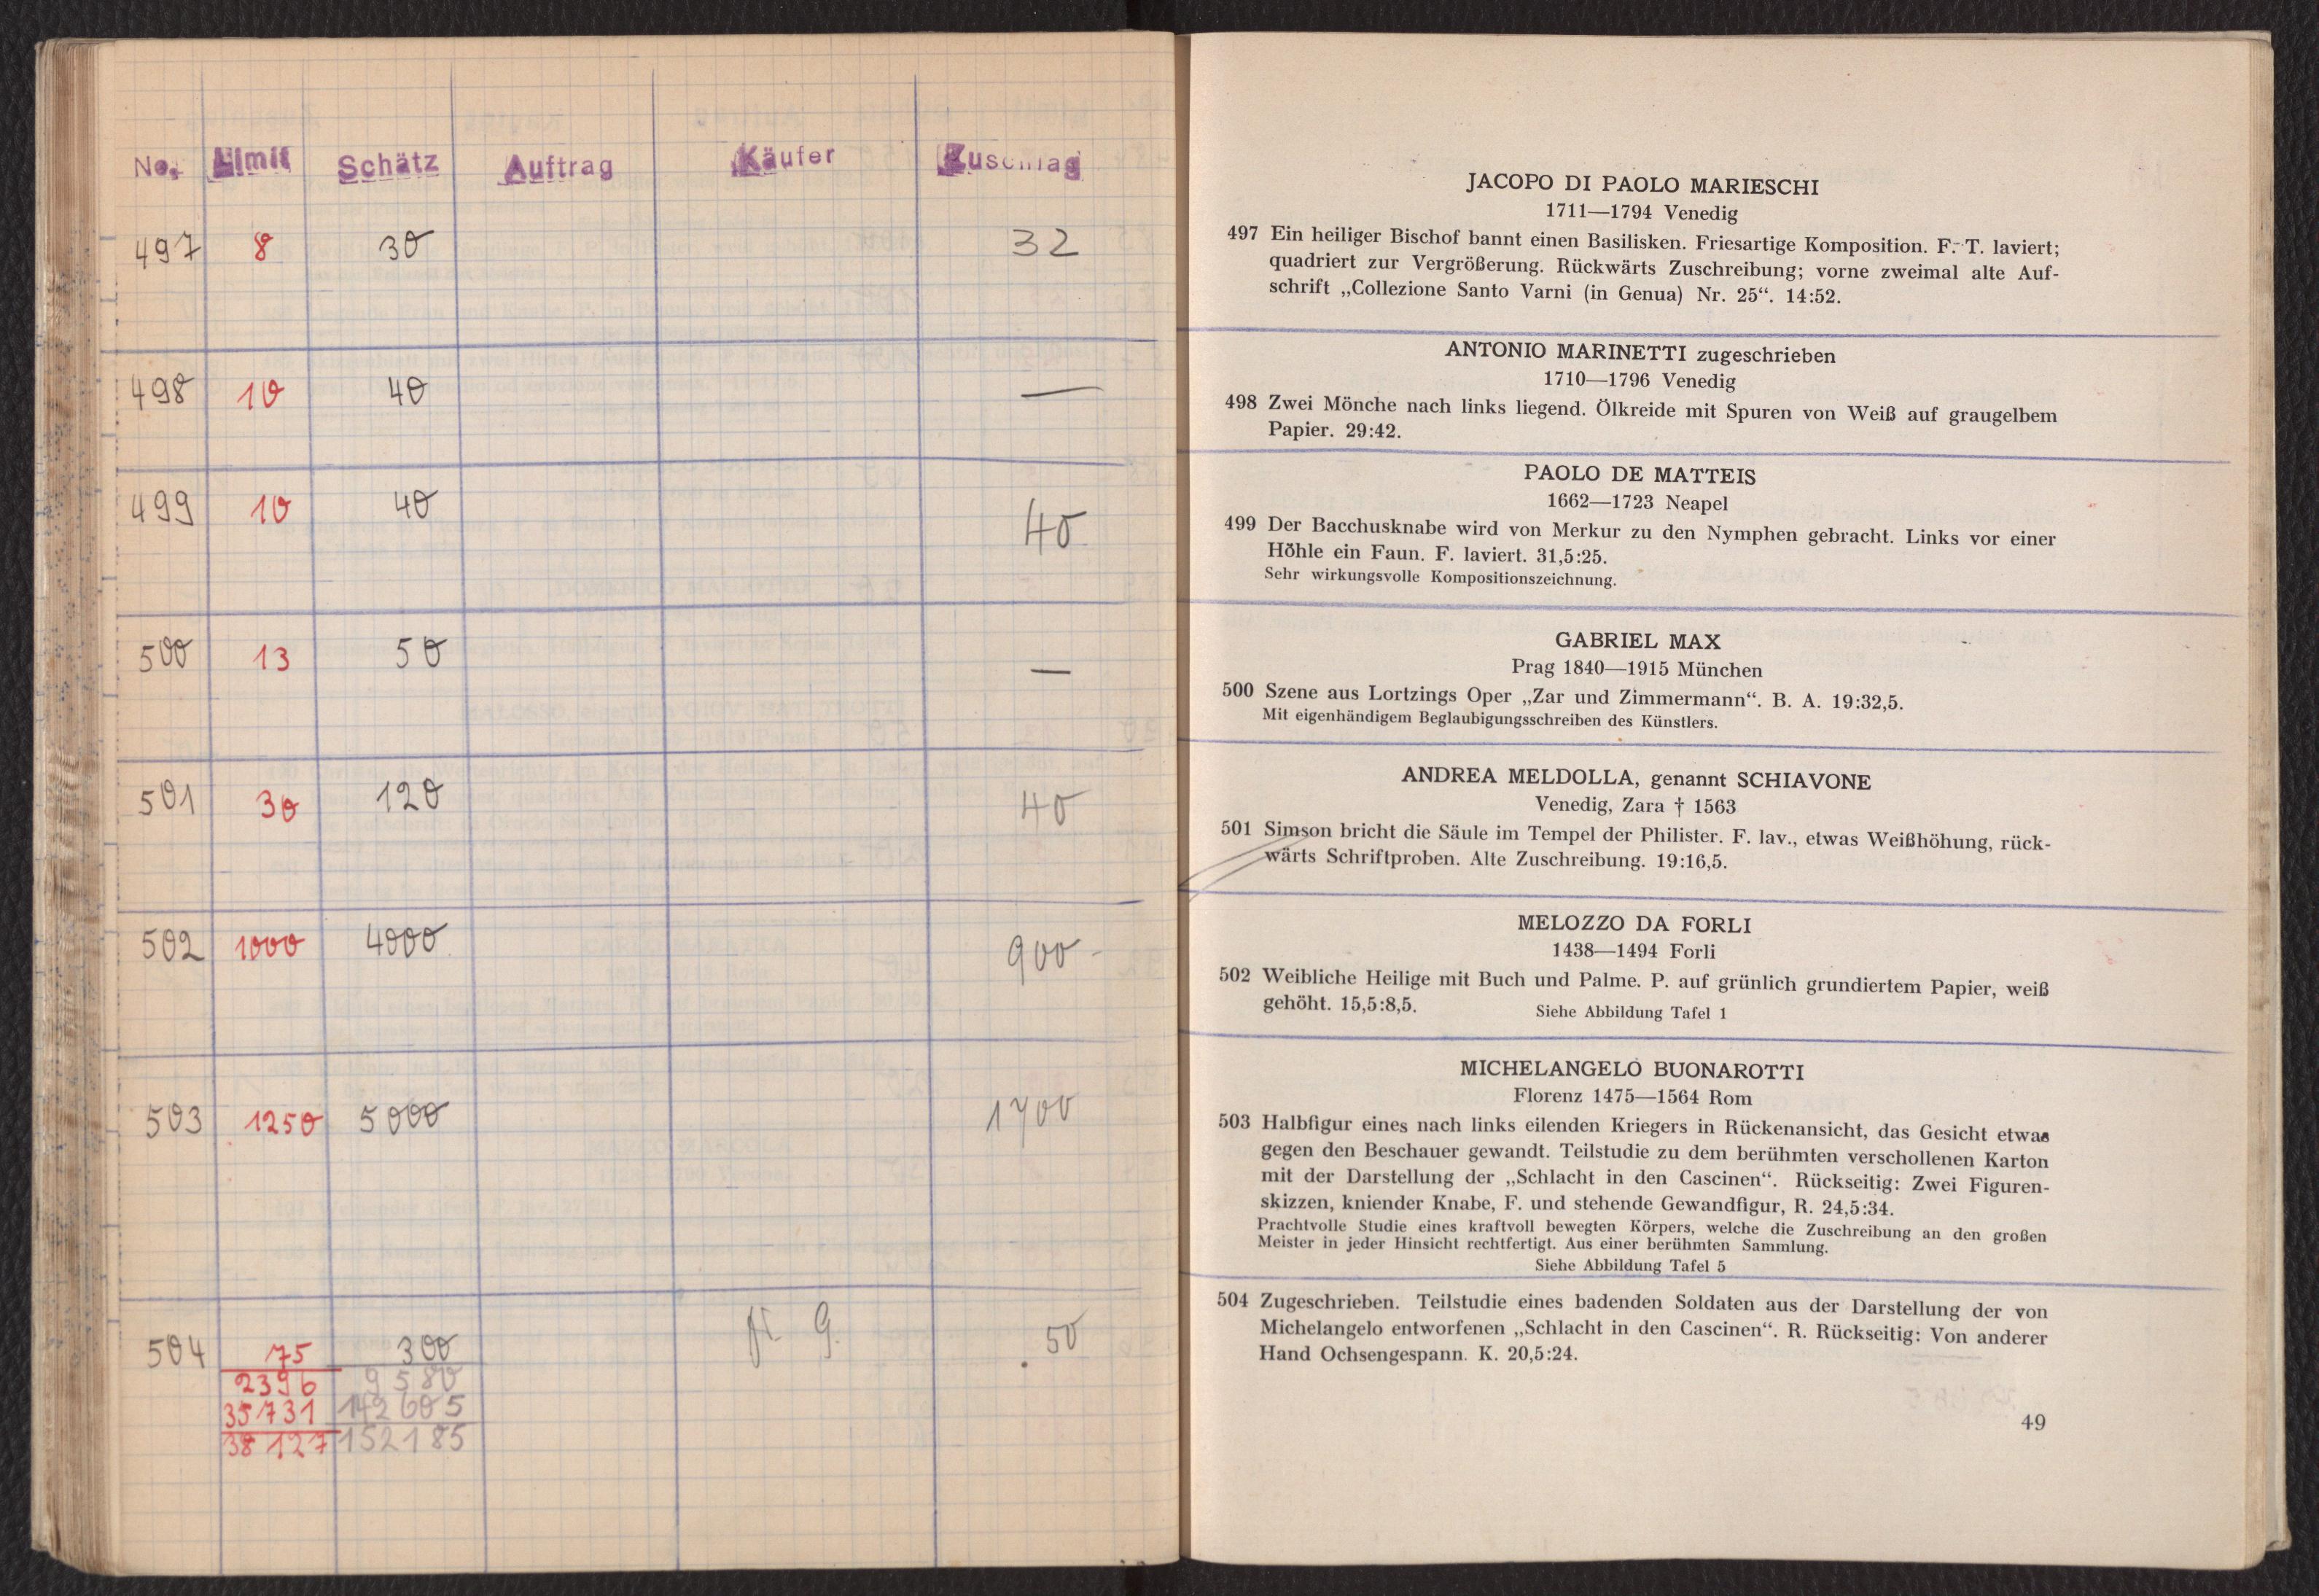 No. Limit Schätz Auftrag Käufer Zuschlag
497 8 30 32
498 10 40 —
499 10 40 40
500 13 50 —
501 30 120 40
502 1000 4000 900
503 1250 5000 1700
504 75 300 50
2396 9580
35731 142605
38127 152185
JACOPO DI PAOLO MARIESCHI
1711—1794 Venedig
497 Ein heiliger Bischof bannt einen Basilisken. Friesartige Komposition. F. T. laviert;
quadriert zur Vergrößerung. Rückwärts Zuschreibung; vorne zweimal alte Auf-
schrift „Collezione Santo Varni (in Genua) Nr. 25“. 14:52.
ANTONIO MARINETTI zugeschrieben
1710—1796 Venedig
498 Zwei Mönche nach links liegend. Ölkreide mit Spuren von Weiß auf graugelbem
Papier. 29:42.
PAOLO DE MATTEIS
1662—1723 Neapel
499 Der Bacchusknabe wird von Merkur zu den Nymphen gebracht. Links vor einer
Höhle ein Faun. F. laviert. 31,5:25.
Sehr wirkungsvolle Kompositionszeichnung.
GABRIEL MAX
Prag 1840—1915 München
500 Szene aus Lortzings Oper „Zar und Zimmermann“. B. A. 19:32,5.
Mit eigenhändigem Beglaubigungsschreiben des Künstlers.
ANDREA MELDOLLA, genannt SCHIAVONE
Venedig, Zara † 1563
501 Simson bricht die Säule im Tempel der Philister. F. lav., etwas Weißhöhung, rück-
wärts Schriftproben. Alte Zuschreibung. 19:16,5.
MELOZZO DA FORLI
1438—1494 Forli
502 Weibliche Heilige mit Buch und Palme. P. auf grünlich grundiertem Papier, weiß
gehöht. 15,5:8,5. Siehe Abbildung Tafel 1
MICHELANGELO BUONAROTTI
Florenz 1475—1564 Rom
503 Halbfigur eines nach links eilenden Kriegers in Rückenansicht, das Gesicht etwas
gegen den Beschauer gewandt. Teilstudie zu dem berühmten verschollenen Karton
mit der Darstellung der „Schlacht in den Cascinen“. Rückseitig: Zwei Figuren-
skizzen, kniender Knabe, F. und stehende Gewandfigur, R. 24,5:34.
Prachtvolle Studie eines kraftvoll bewegten Körpers, welche die Zuschreibung an den großen
Meister in jeder Hinsicht rechtfertigt. Aus einer berühmten Sammlung.
Siehe Abbildung Tafel 5
504 Zugeschrieben. Teilstudie eines badenden Soldaten aus der Darstellung der von
Michelangelo entworfenen „Schlacht in den Cascinen“. R. Rückseitig: Von anderer
Hand Ochsengespann. K. 20,5:24.
49